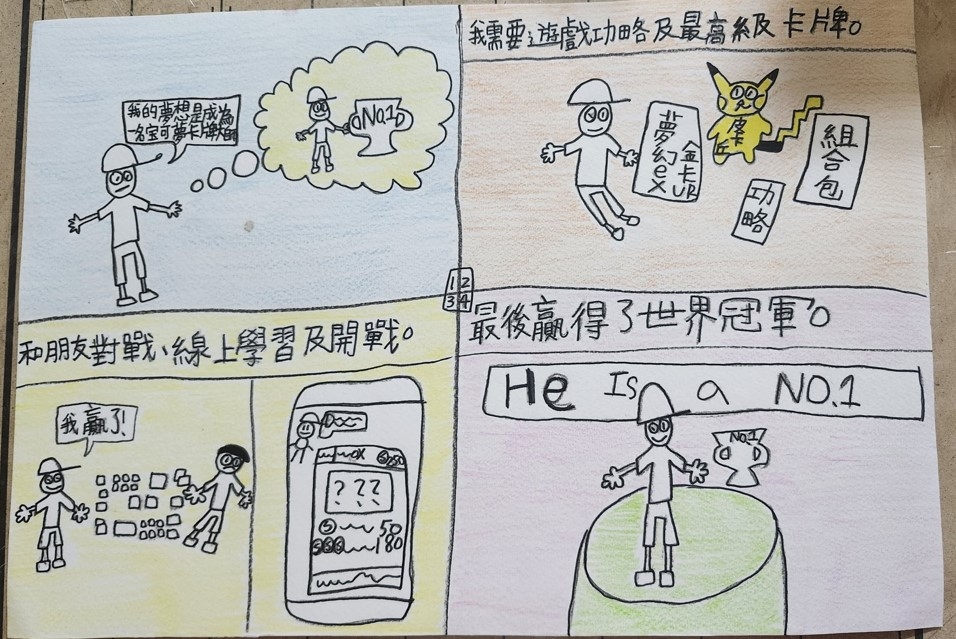 我的夢想是成為
一名宝可夢卡牌大師
NO.1
我需要遊戲功略及最高級卡牌。
夢幻ex
金卡UR
皮卡丘
功略
組合包
1 2
3 4
和朋友對戰、線上學習及開戰。
我贏了!
ox
250
? ? ?
50
180
最後贏得了世界冠軍。
He Is a NO.1
NO.1